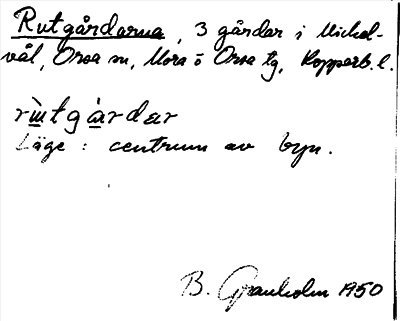 Rutgårdarna, 3 gårdar i Mickel-
vål, Orsa sn, Mora o Orsa tg, Kopparb. l.
rùtgàrdar
Läge : centrum av byn.
B. Granholm 1950